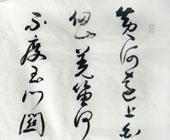 黄河遠上白
仞山羌笛何
不度玉门關